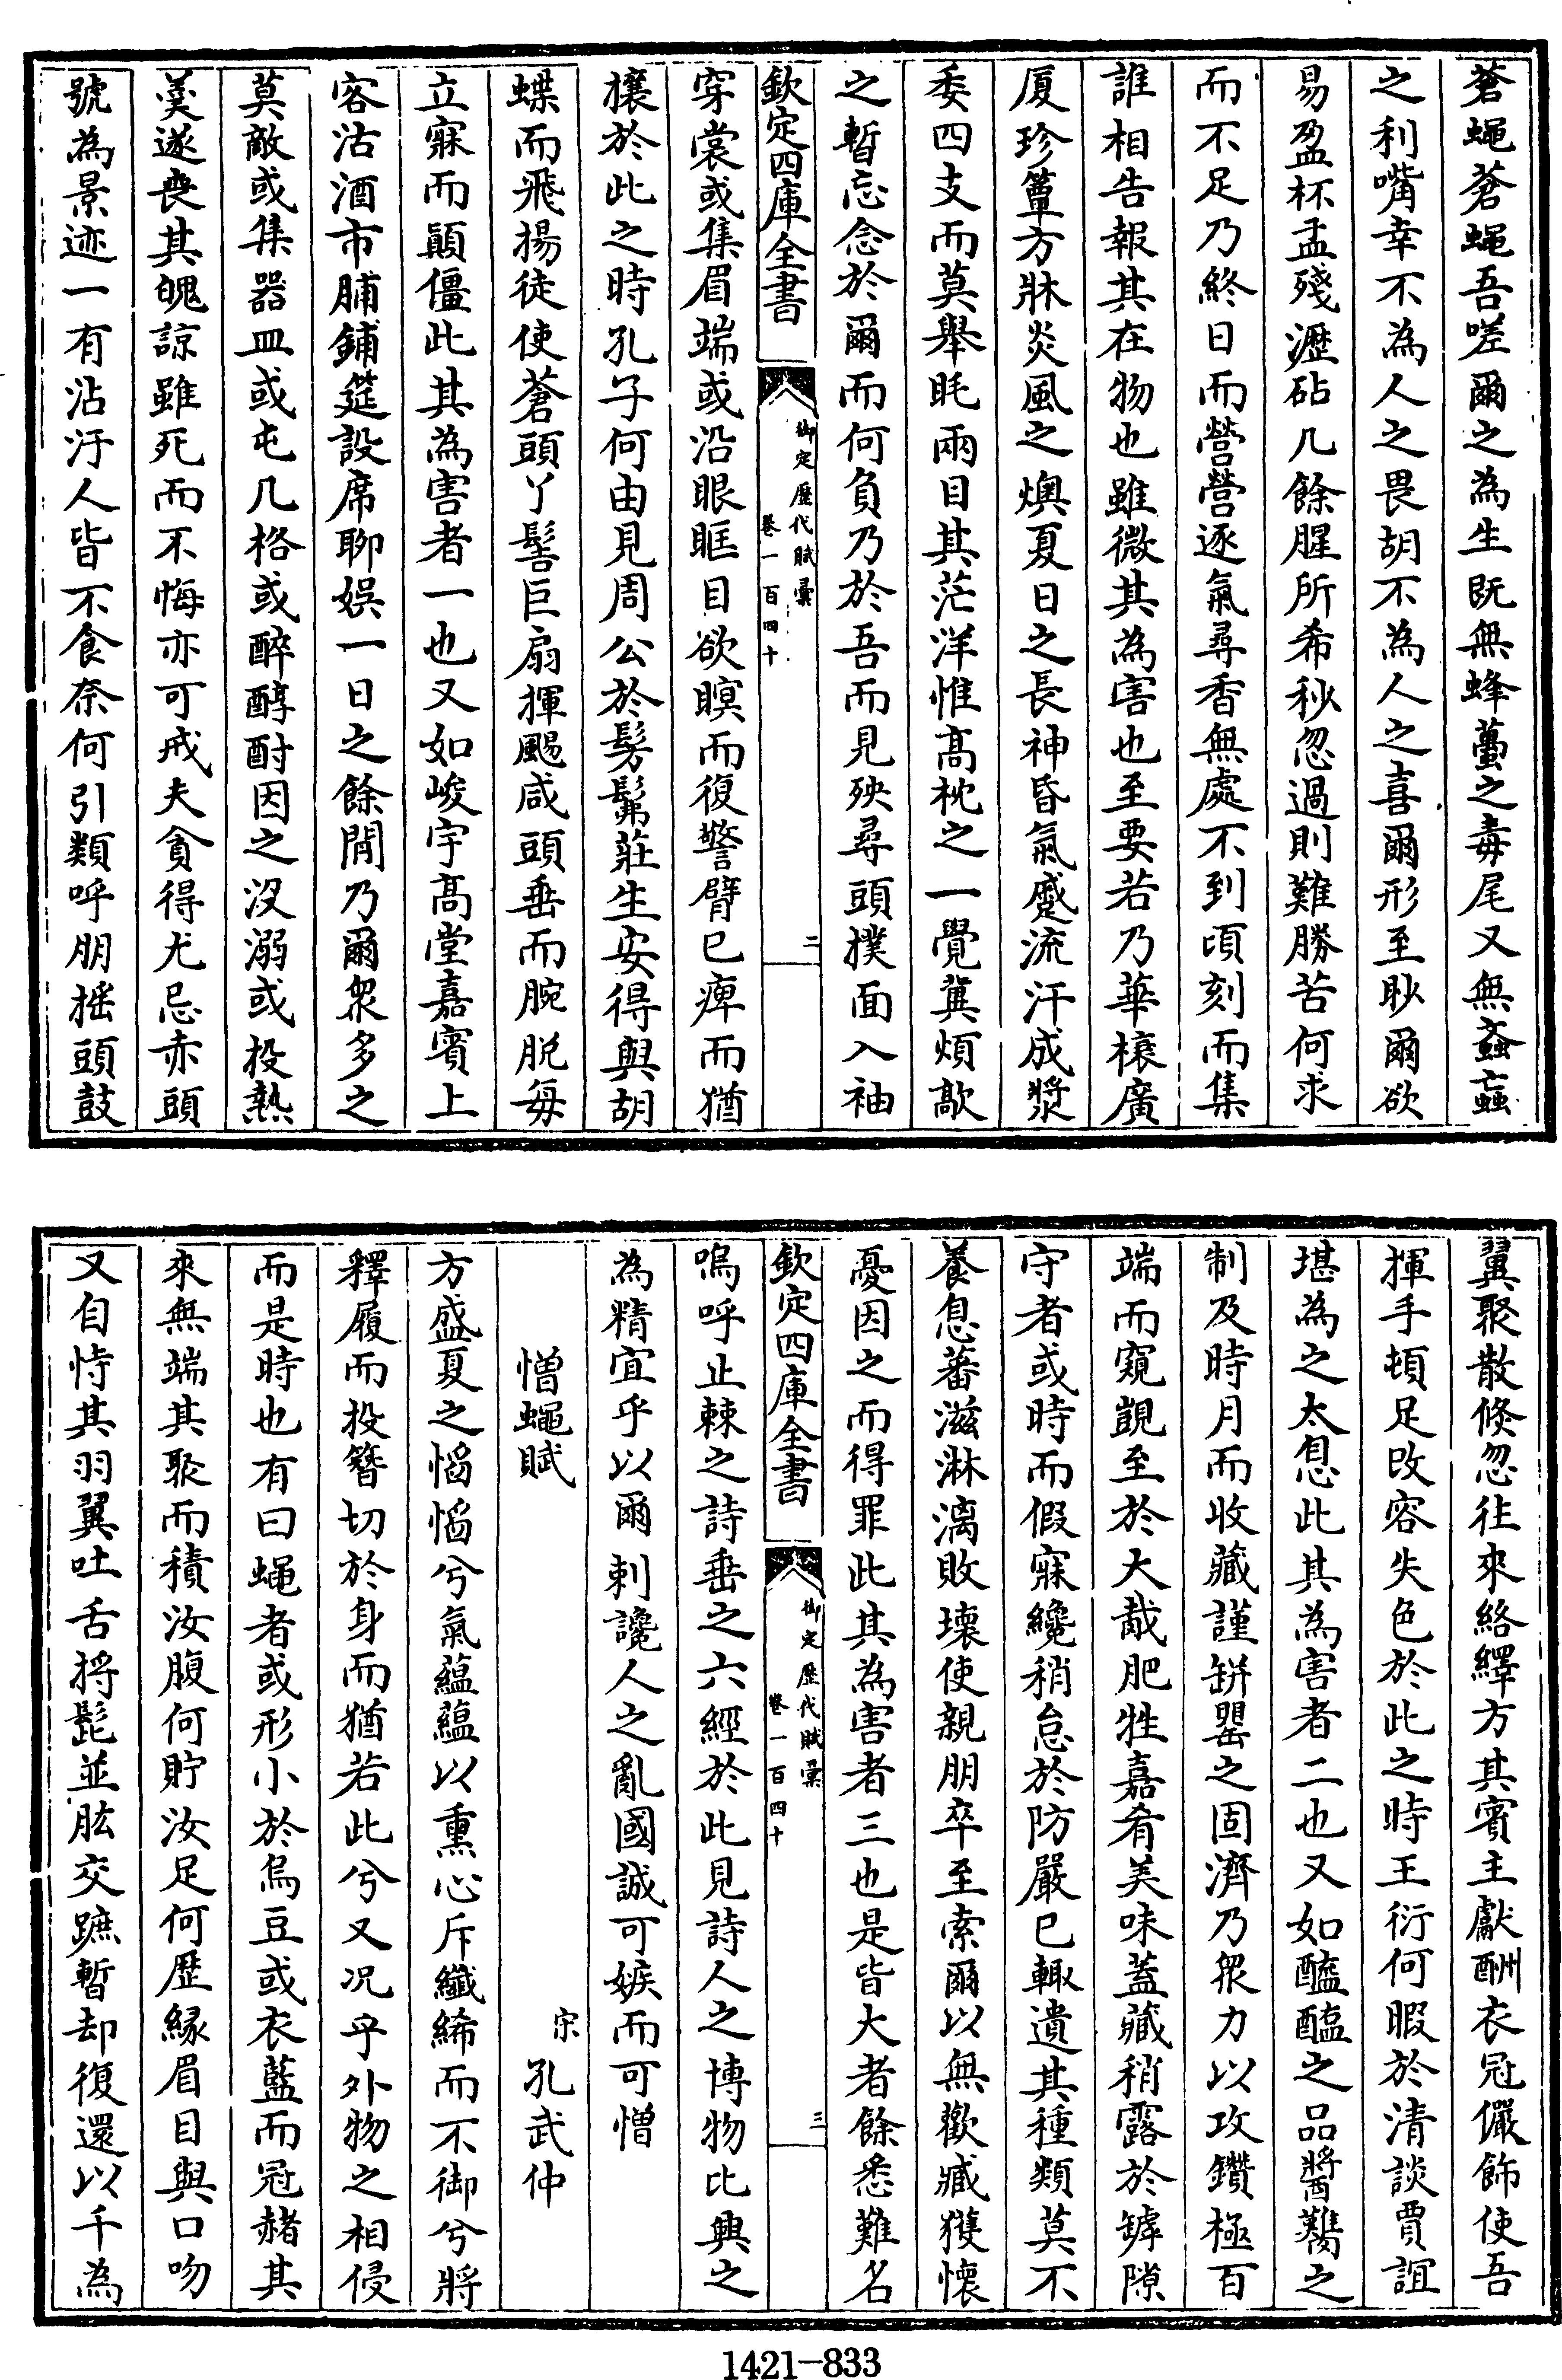 蒼蠅蒼蠅吾嗟爾之為生既無蜂蠆之毒尾又無蚉蝱
之利嘴幸不為人之畏胡不為人之喜爾形至眇爾欲
易盈杯盂殘瀝砧几餘腥所希秒忽過則難勝苦何求
而不足乃終日而營營逐氣尋香無處不到頃刻而集
誰相告報其在物也雖微其為害也至要若乃華榱廣
厦珍簟方牀炎風之燠夏日之長神昏氣蹙流汗成漿
委四支而莫舉眊兩目其茫洋惟髙枕之一覺冀煩歊
之暫忘念於爾而何負乃於吾而見殃尋頭撲面入袖
欽定四庫全書
御定歴代賦彚
卷一百四十
二
穿裳或集眉端或沿眼眶目欲瞑而復警臂已痺而猶
攘於此之時孔子何由見周公於髣髴莊生安得與胡
蝶而飛揚徒使蒼頭丫髻巨扇揮颺咸頭垂而腕脱每
立寐而顚僵此其為害者一也又如峻宇髙堂嘉賓上
客沽酒市脯鋪筵設席聊娯一日之餘閒乃爾衆多之
莫敵或集器皿或屯几格或醉醇酎因之沒溺或投熱
羮遂喪其魄諒雖死而不悔亦可戒夫貪得尤忌赤頭
號為景迹一有沾汙人皆不食奈何引類呼朋摇頭鼓
翼聚散倐忽往來絡繹方其賓主獻酬衣冠儼飾使吾
揮手頓足改容失色於此之時王衍何暇於清談賈誼
堪為之太息此其為害者二也又如醯醢之品醬臡之
制及時月而收藏謹缾罌之固濟乃衆力以攻鑽極百
端而窺覬至於大胾肥牲嘉肴美味蓋藏稍露於罅隙
守者或時而假寐纔稍怠於防嚴已輙遺其種類莫不
養息蕃滋淋漓敗壊使親朋卒至索爾以無歡臧獲懐
憂因之而得罪此其為害者三也是皆大者餘悉難名
欽定四庫全書
御定歴代賦彚
卷一百四十
三
嗚呼止棘之詩垂之六經於此見詩人之博物比興之
為精宜乎以爾刺讒人之亂國誠可嫉而可憎
憎蠅賦
宋孔武仲
方盛夏之慆慆兮氣藴藴以熏心斥纎絺而不御兮將
釋履而投簪切於身而猶若此兮又况乎外物之相侵
而是時也有曰蠅者或形小於烏豆或衣藍而冠赭其
來無端其聚而積汝腹何貯汝足何歴緣眉目與口吻
又自恃其羽翼吐舌捋髭並肱交蹠暫却復還以千為
1421-833